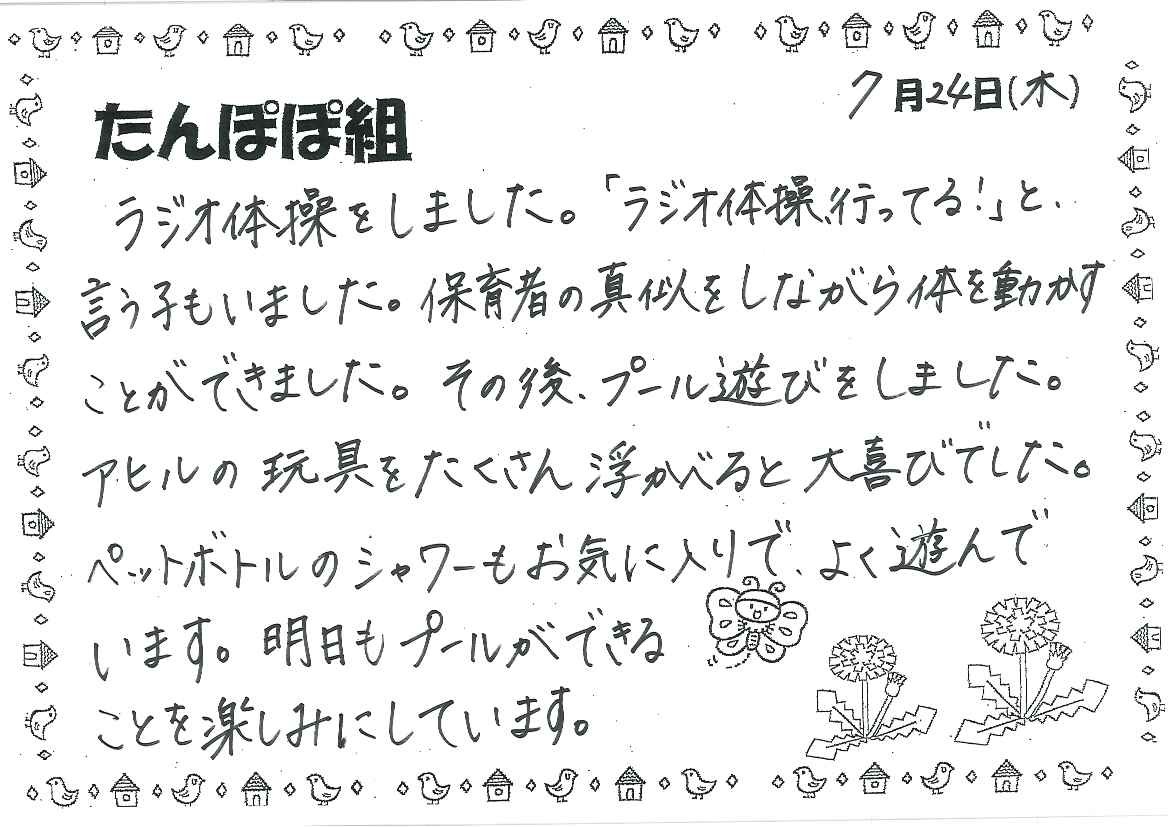 7月24日(木)
たんぽぽ組
ラジオ体操をしました。「ラジオ体操、行ってる!」と、
言う子もいました。保育者の真似をしながら体を動かす
ことができました。その後、プール遊びをしました。
アヒルの玩具をたくさん浮かべると大喜びでした。
ペットボトルのシャワーもお気に入りで、よく遊んで
います。明日もプールができる
ことを楽しみにしています。